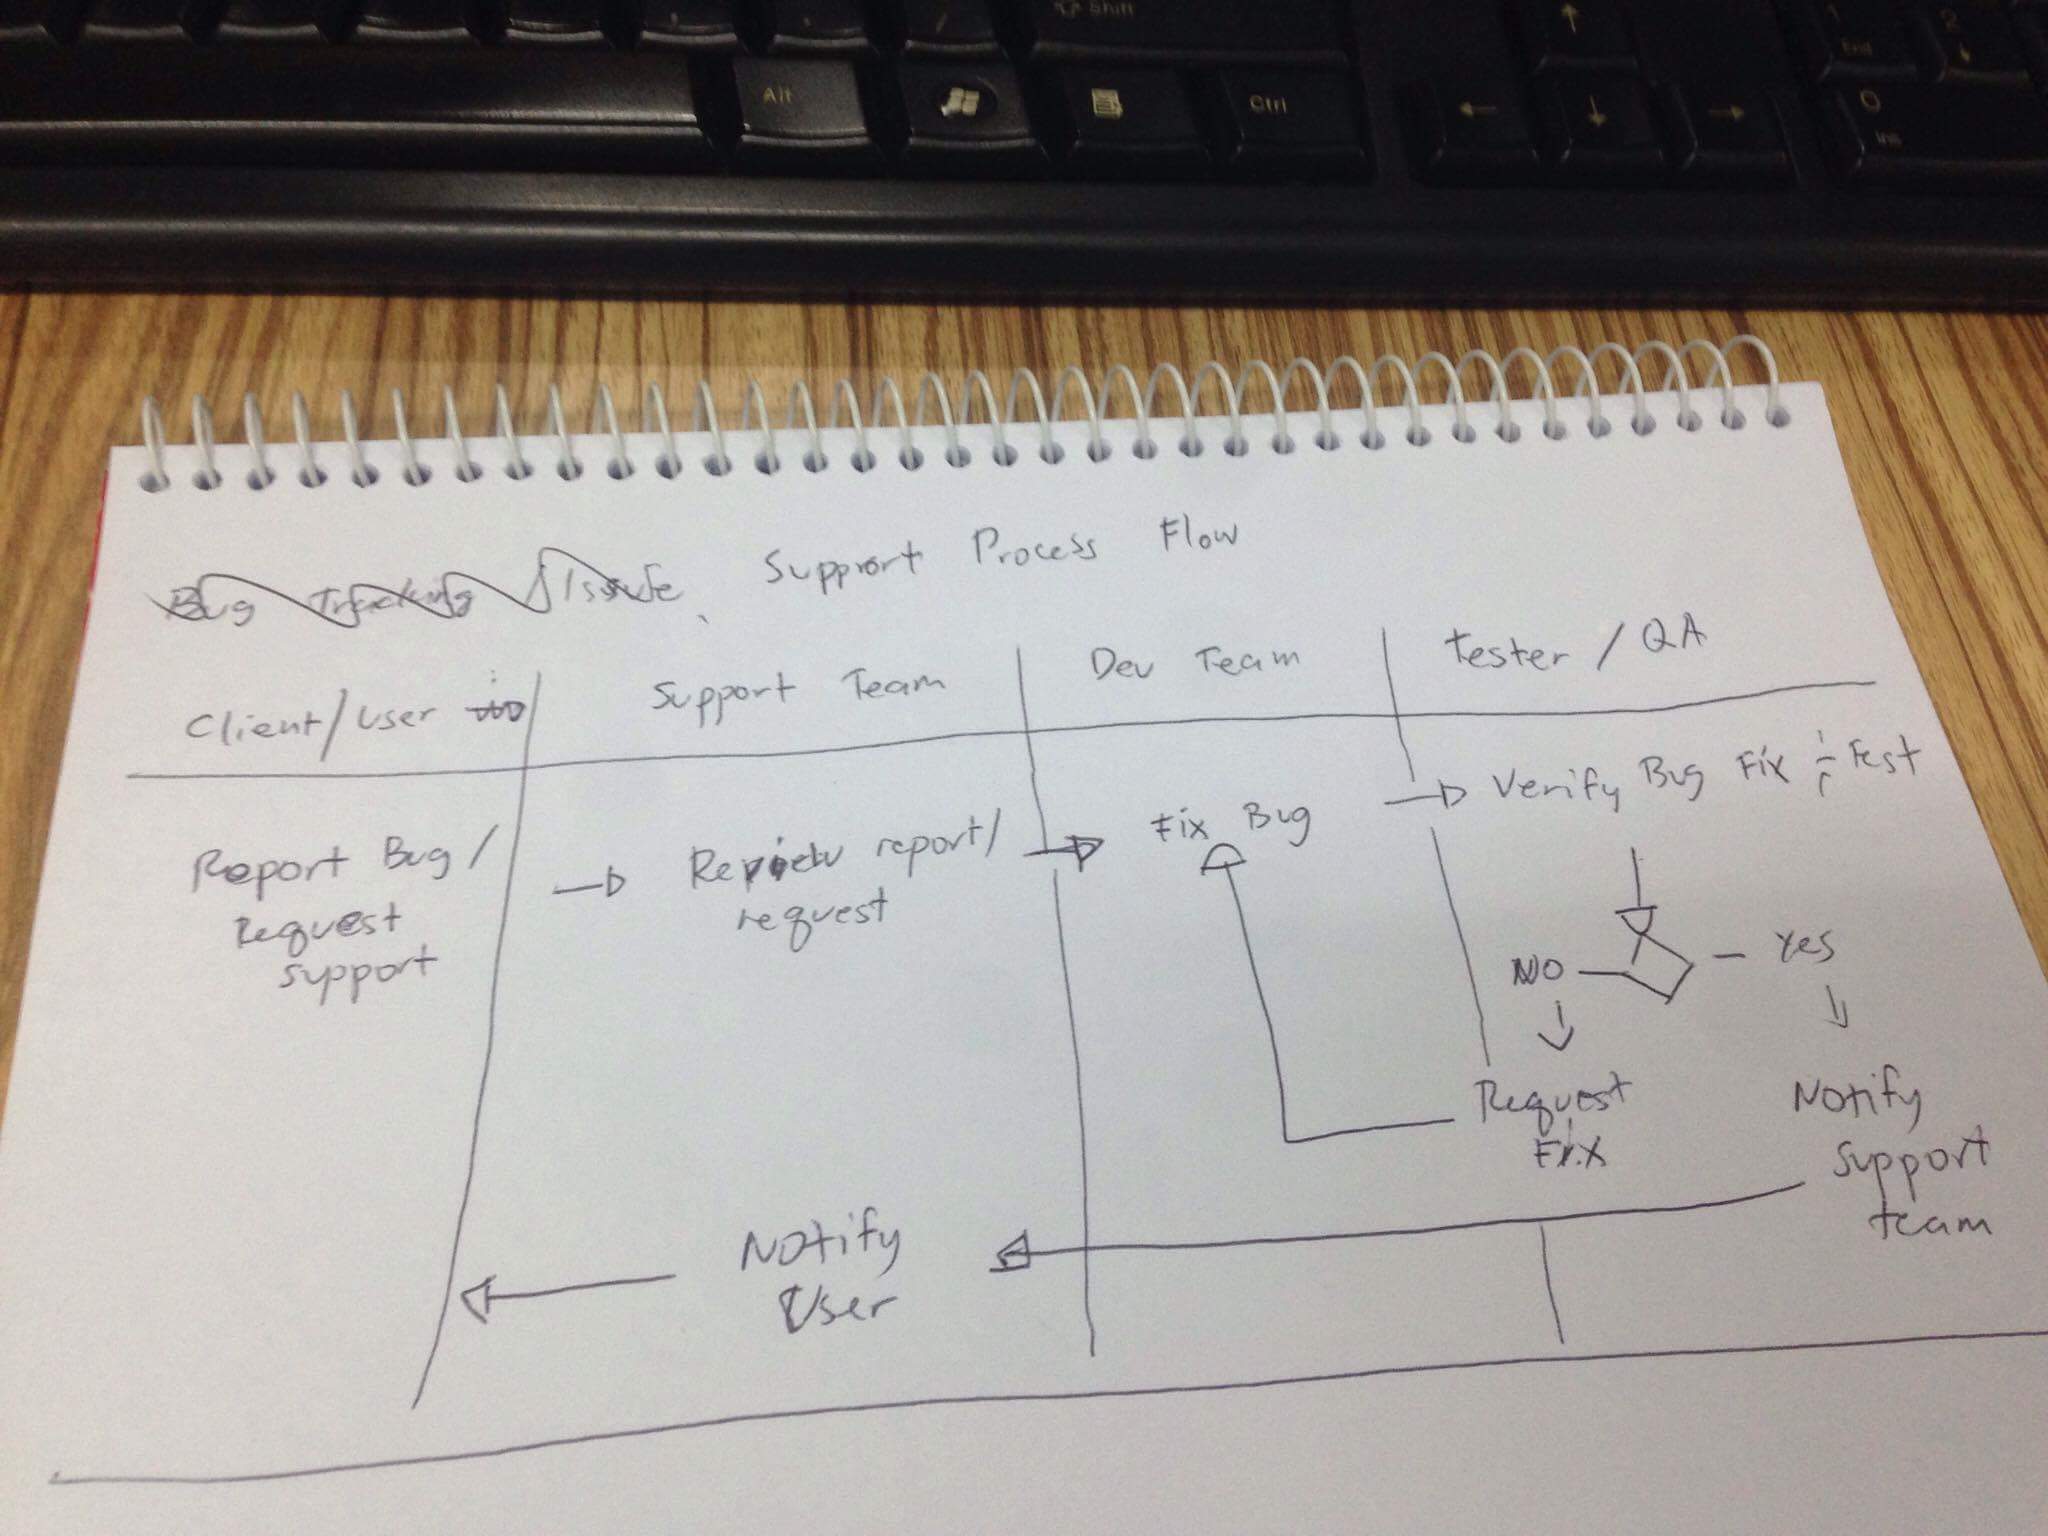 Shift
Alt
Ctrl
1
End
2
0
Ins
Bug Tracking / Issue
Support Process Flow
Client/User
Support Team
Dev Team
Tester / QA
Report Bug /
Request
support
Review report/
request
Fix Bug
Verify Bug Fix & Test
NO
Yes
Request
Fix
Notify
support
team
Notify
User